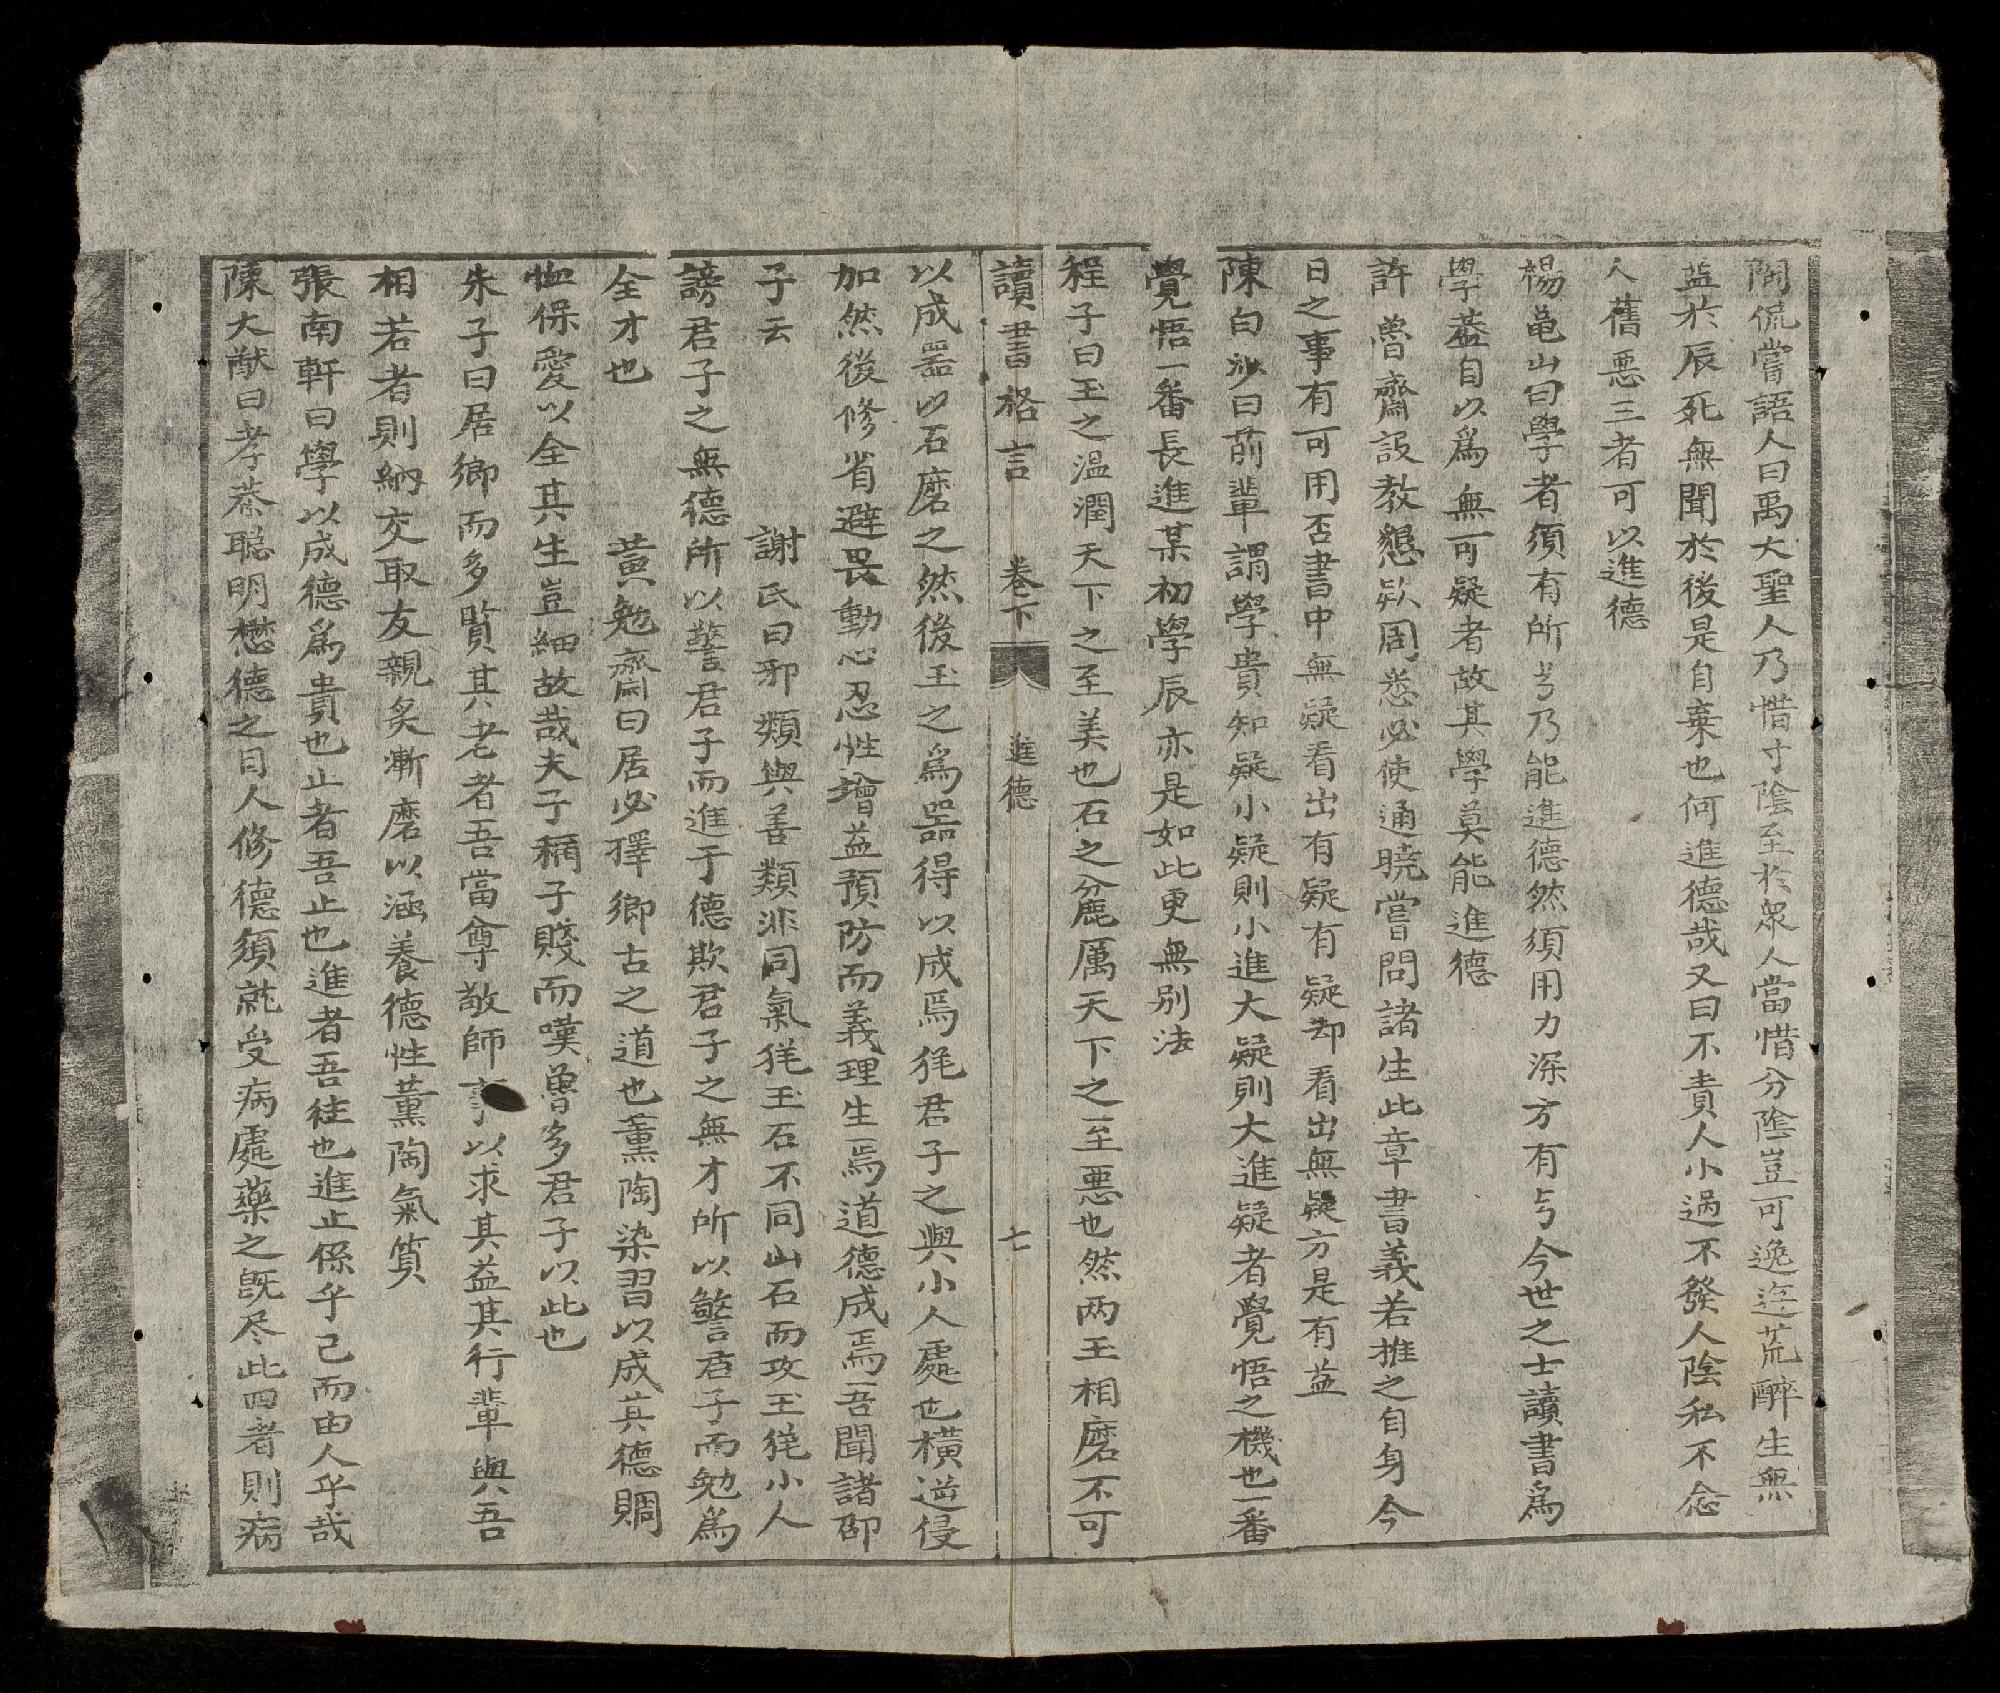 陶侃嘗語人曰禹大聖人乃惜寸陰至於衆人當惜分陰豈可逸遊荒醉生無
益於辰死無聞於後是自棄也何進德哉又曰不責人小過不發人陰私不念
人舊惡三者可以進德
楊龜山曰學者須有所疑乃能進德然須用力深方有疑今世之士讀書為
學蓋自以爲無可疑者故其學莫能進德
許魯齋設教懇欵周悉必使通曉嘗問諸生此章書義若推之自身今
日之事有可用否書中無疑看出有疑有疑却看出無疑方是有益
陳白沙曰前輩謂學貴知疑小疑則小進大疑則大進疑者覺悟之機也一番
覺悟一番長進某初學辰亦是如此更無別法
程子曰玉之温潤天下之至美也石之麄厲天下之至惡也然两玉相磨不可
讀書格言 卷下 進德 七
以成噐以石磨之然後玉之爲噐得以成焉猐君子之與小人處也横逆侵
加然後修省避畏動心忍性增益預防而義理生焉道德成焉吾聞諸邵
子云 謝氏曰邪類與善類非同氣猐玉石不同山石而攻玉猐小人
謗君子之無德所以警君子而進于德欺君子之無才所以警君子而勉爲
全才也 黄勉齋曰居必擇鄉古之道也薰陶染習以成其德賙
恤保愛以全其生豈細故哉夫子稱子賤而嘆魯多君子以此也
朱子曰居鄉而多賢其老者吾當尊敬師事以求其益其行輩與吾
相若者則納交取友親炙漸磨以涵養德性薰陶氣質
張南軒曰學以成德爲貴也止者吾止也進者吾往也進止係乎己而由人乎哉
陳大猷曰孝恭聰明懋德之目人修德須就受病處藥之既尽此四者則病